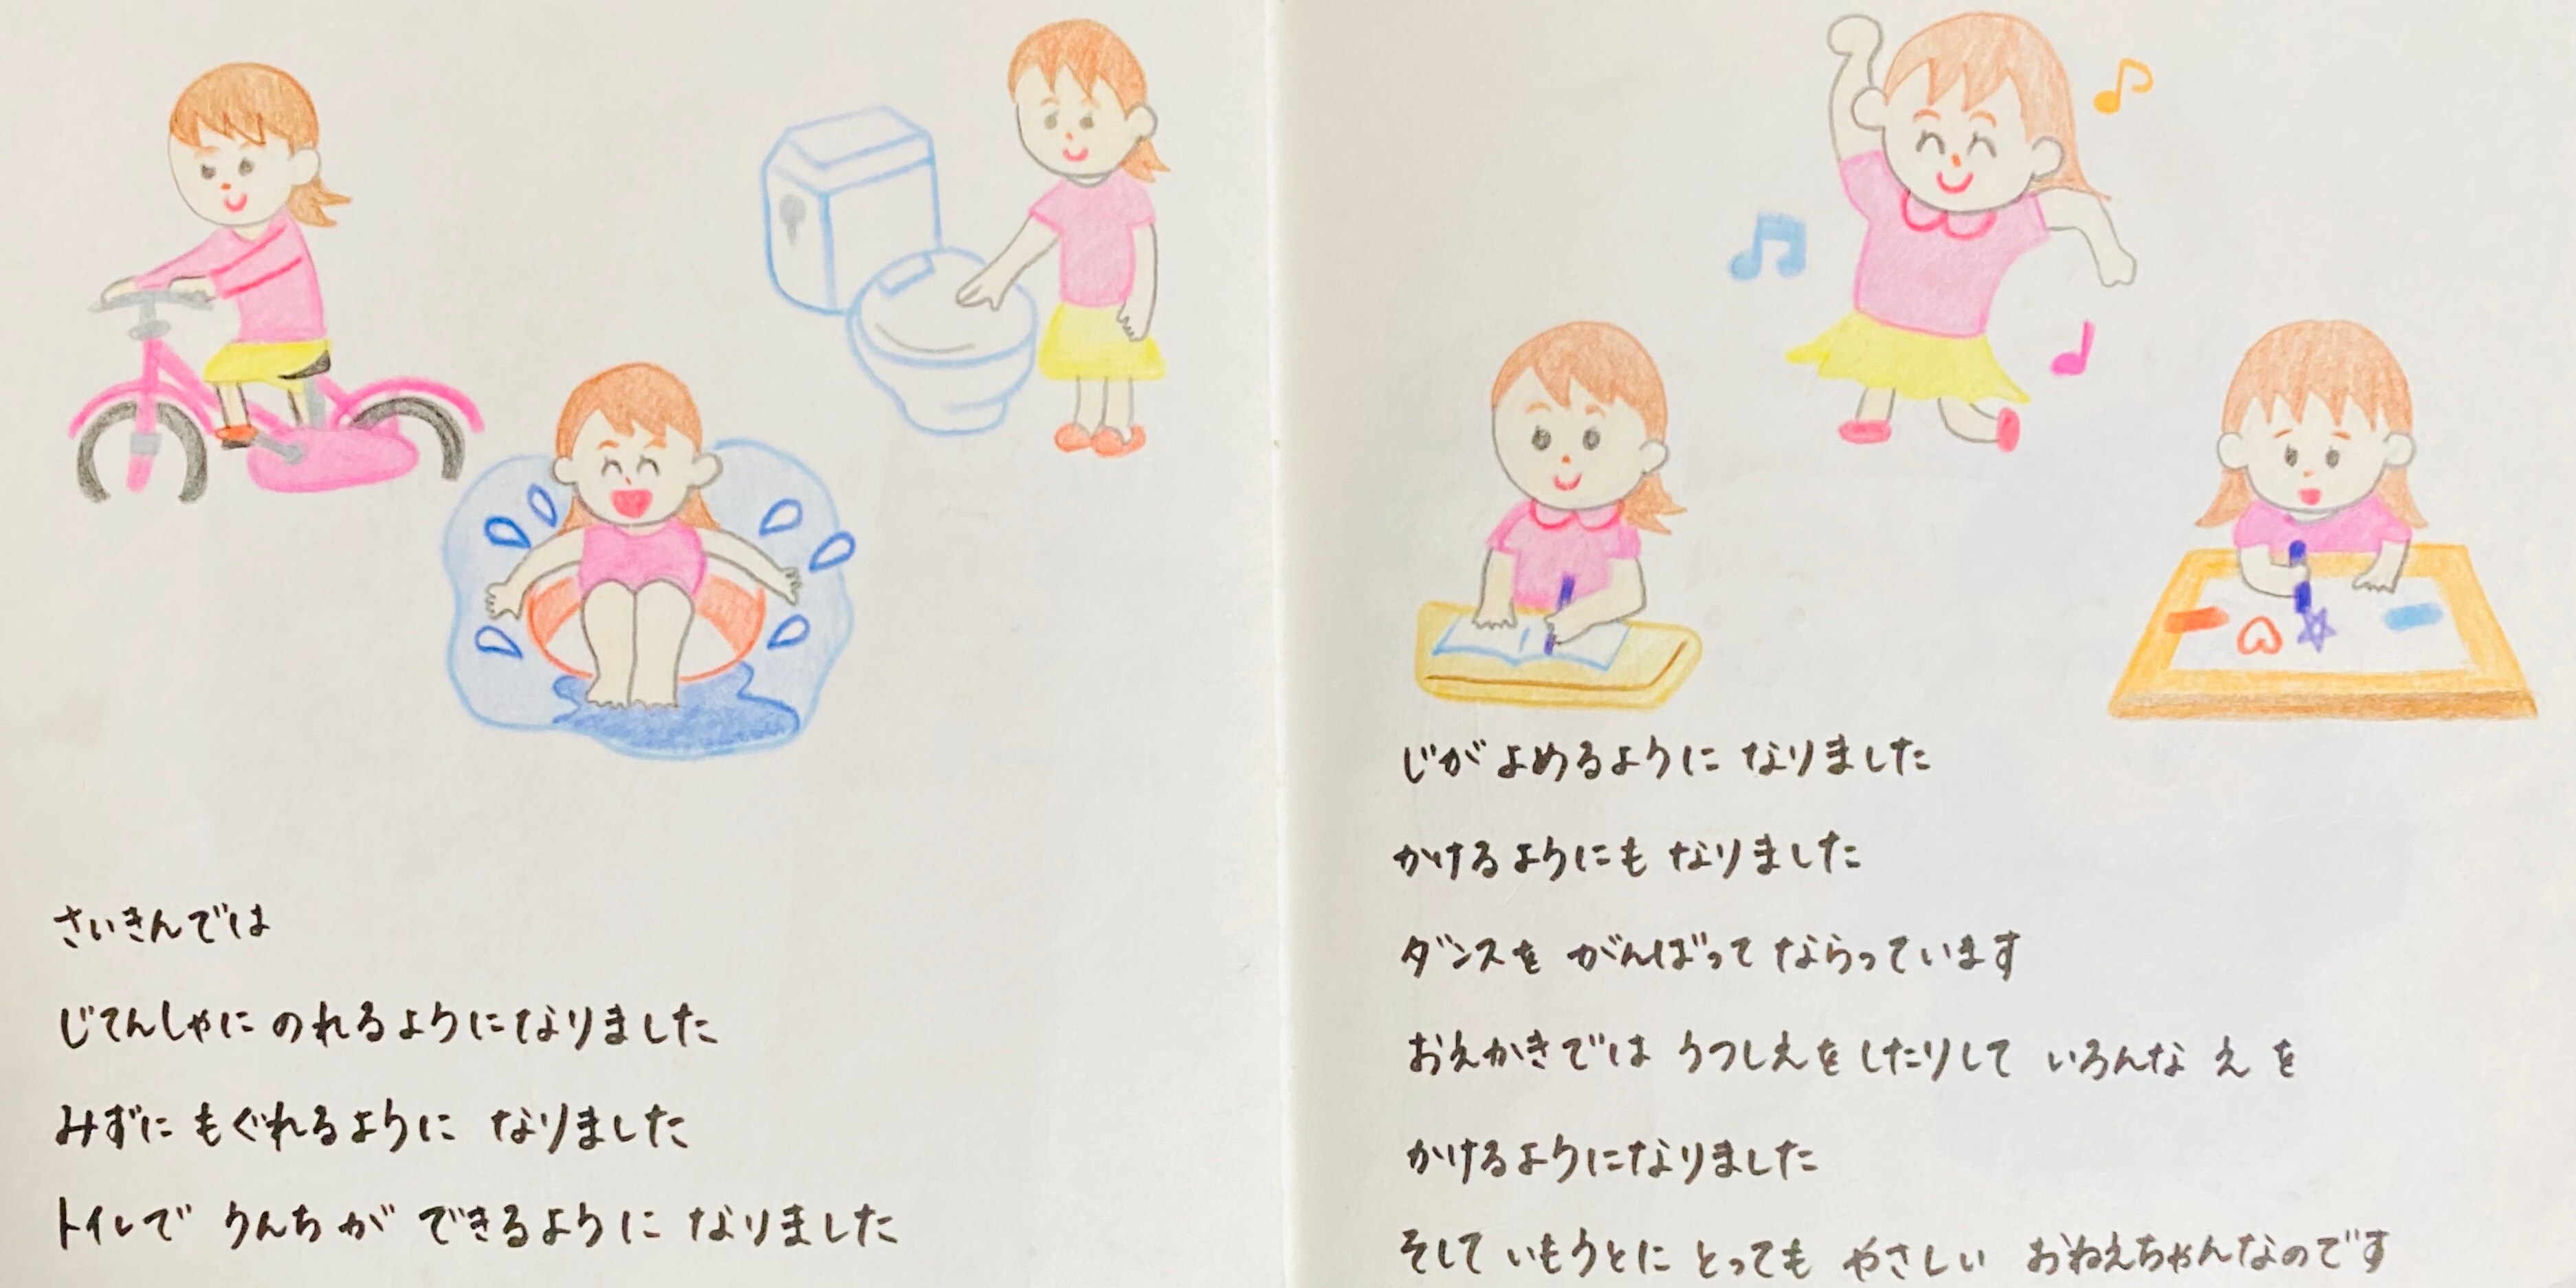 さいきんでは
じてんしゃに のれるようになりました
みずに もぐれるように なりました
トイレで うんちが できるように なりました
じが よめるように なりました
かけるようにも なりました
ダンスを がんばって ならっています
おえかきでは うつしえを したりして いろんな え を
かけるようになりました
そして いもうとに とっても やさしい おねえちゃんなのです